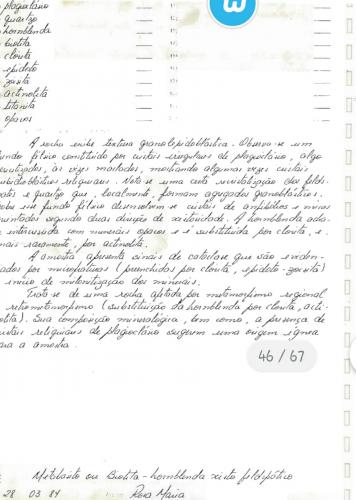 plagioclásio
quartzo
hornblenda
biotita
clorita
epidoto
zoisita
actinolita
titanita
opacos
A rocha exibe textura granolepidoblástica. Observa-se um
fundo félsico constituído por cristais irregulares de plagioclásio, algo
às vezes maclados, mostrando algumas vezes cristais
reliquiares. Nota-se uma certa recristalização dos felds-
patos e quartzo que, localmente, formam agregados granoblásticos.
Sobre esse fundo félsico desenvolvem-se cristais de anfibólios e micas
orientados segundo duas direções de xistosidade. A hornblenda acha-
se intercrescida com minerais opacos e é substituída por clorita, e,
mais raramente, por actinolita.
A amostra apresenta sinais de cataclase que são eviden-
ciados por microfraturas (preenchidas por clorita, epidoto-zoisita)
e início de milonitização dos minerais.
Trata-se de uma rocha afetada por metamorfismo regional
e retrometamorfismo (substituição da hornblenda por clorita, acti-
nolita). Sua composição mineralógica, bem como, a presença de
cristais reliquiares de plagioclásio sugerem uma origem ígnea
para a amostra.
46 / 67
Metabasito ou Biotita-hornblenda xisto feldspático
28 03 84 Rosa Maria